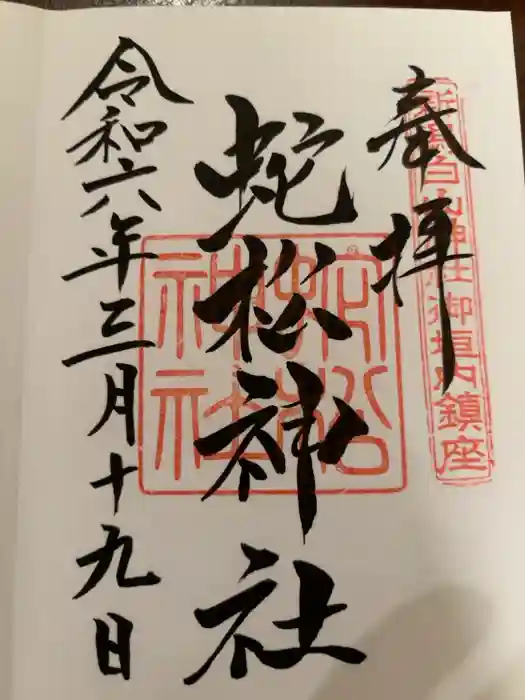 奉拝
新潟白山神社御垣内鎮座
蛇松神社
蛇松神社
令和六年三月十九日